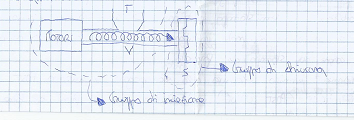 T
MOTORE
V
S
Gruppo di chiusura
Gruppo di iniezione